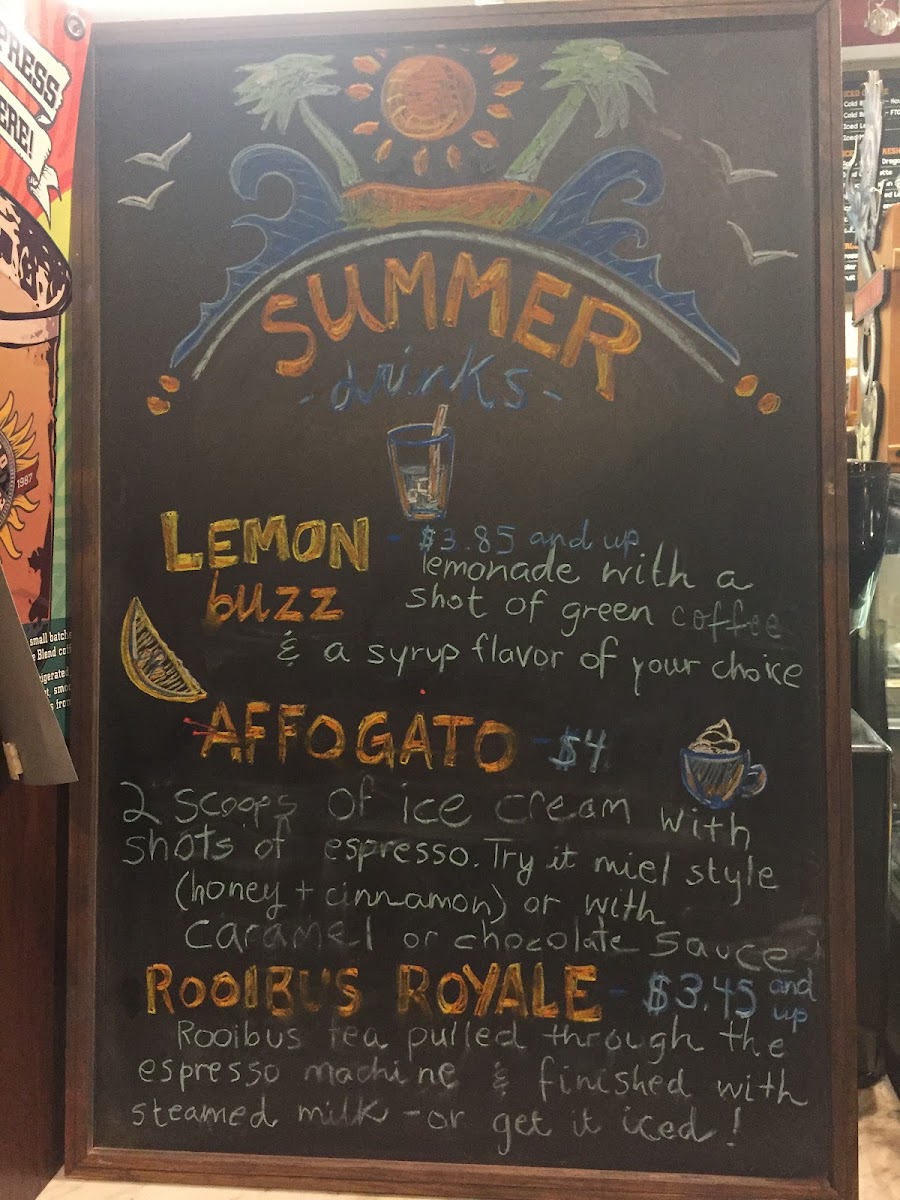 PRESS
ERE!
1987
small batche
s Blend cof
SUMMER
-drinks-
LEMON - $3.85 and up
buzz
lemonade with a
shot of green coffee
& a syrup flavor of your choice
AFFOGATO - $4
2 scoops of ice cream with
shots of espresso. Try it miel style
(honey + cinnamon) or with
caramel or chocolate sauce
ROOIBUS ROYALE - $3.45 and up
Rooibus tea pulled through the
espresso machine & finished with
steamed milk - or get it iced!